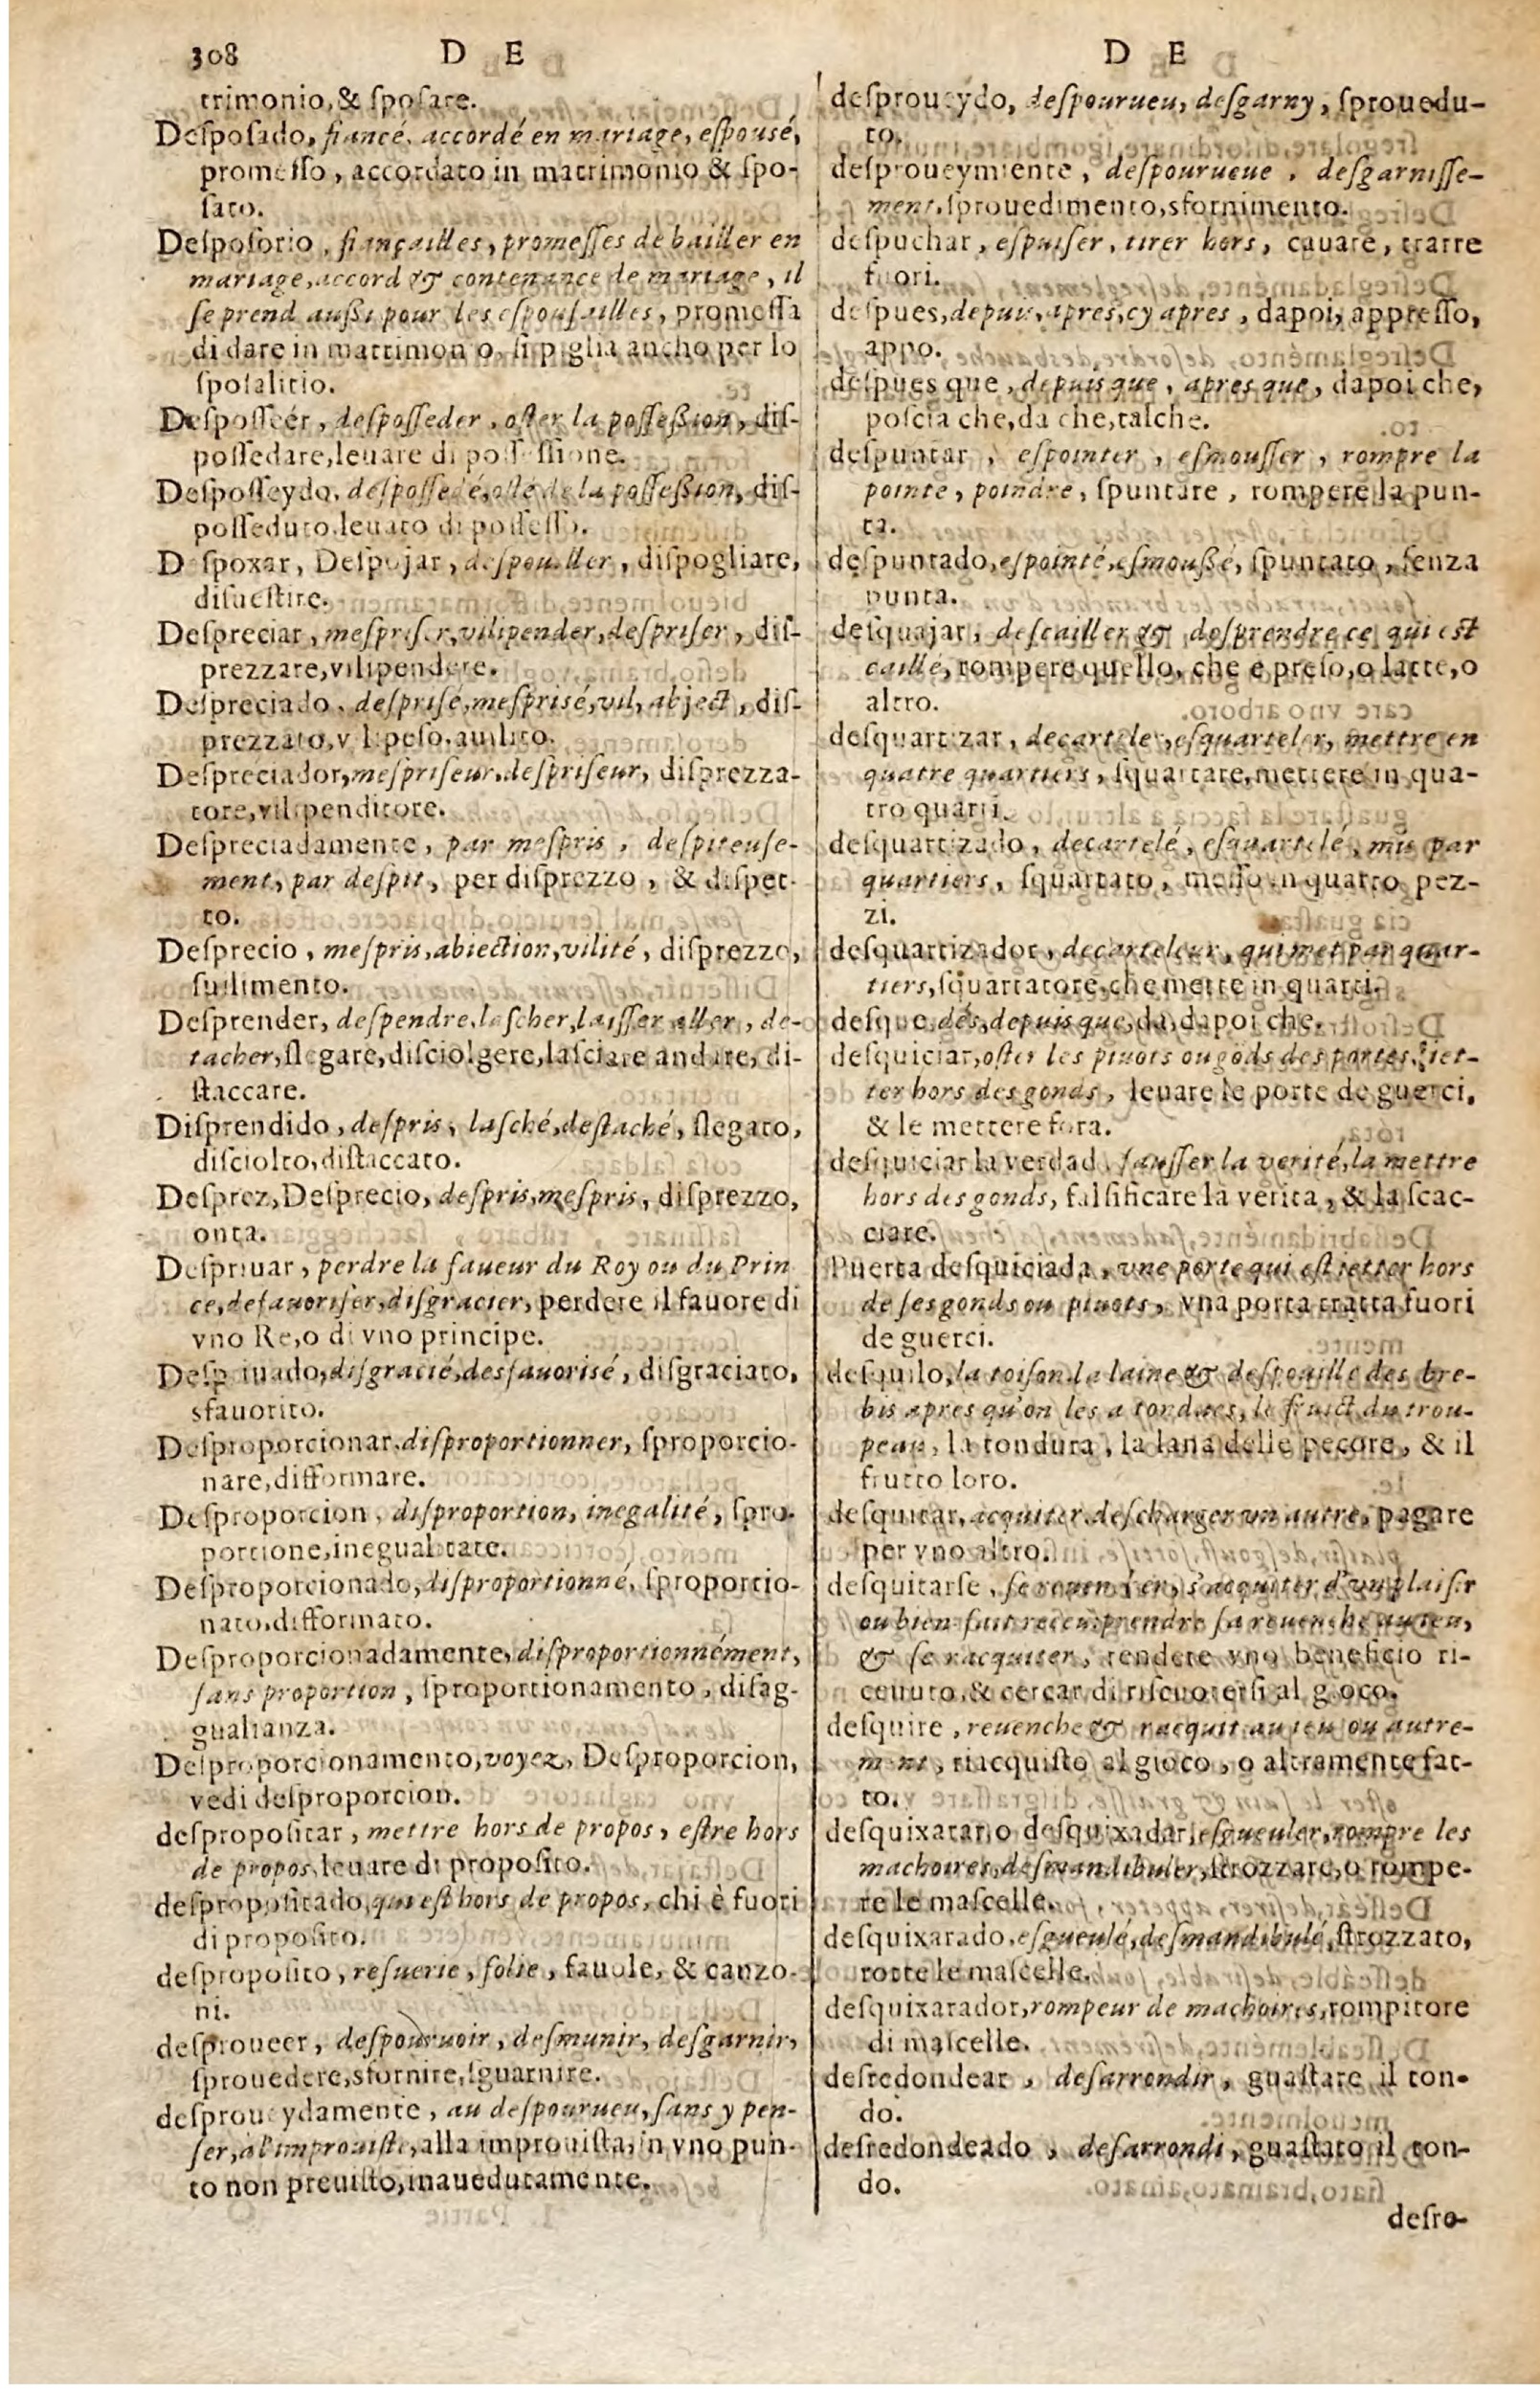 308 D E
trimonio,& ſpoſare.
Deſpoſado, fiancé, accordé en mariage, eſpousé,
promeſſo, accordato in matrimonio & ſpo-
ſato.
Deſpoſorio, fiançailles, promeſſes de bailler en
mariage, accord & contenance de mariage, il
ſe prend außi pour les eſpouſailles, promeſſa
di dare in matrimonio, ſi piglia ancho per lo
ſpoſalitio.
Deſpoſſeer, deſpoſſeder, oſter la poſſeßion, diſ-
poſſedare, leuare di poſſeſſione.
Deſpoſſeydo, deſpoſſedé, oſté de la poſſeßion, diſ-
poſſeduto, leuato di poſſeſſo.
Deſpoxar, Deſpojar, deſpouiller, diſpogliare,
diſueſtire.
Deſpreciar, meſpriſer, vilipender, deſpriſer, diſ-
prezzare, vilipendere.
Deſpreciado, deſpriſé, meſprisé, vil, abject, diſ-
prezzato, vilipeſo, auilito.
Deſpreciador, meſpriſeur, deſpriſeur, diſprezza-
tore, vilipenditore.
Deſpreciadamente, par meſpris, deſpiteuſe-
ment, par deſpit, per diſprezzo, & diſpet-
to.
Deſprecio, meſpris, abiection, vilité, diſprezzo,
ſuilimento.
Deſprender, deſpendre, laſcher, laiſſer aller, de-
tacher, ſlegare, diſciolgere, laſciare andare, di-
ſtaccare.
Diſprendido, deſpris, laſché, deſtaché, ſlegato,
diſciolto, diſtaccato.
Deſprez, Deſprecio, deſpris, meſpris, diſprezzo,
onta.
Deſpriuar, perdre la faueur du Roy ou du Prin
ce, defauoriſer, diſgracier, perdere il fauore di
vno Re, o di vno principe.
Deſpriuado, diſgracié, desfauorisé, diſgraciato,
sfauorito.
Deſproporcionar, diſproportionner, ſproporcio-
nare, difformare.
Deſproporcion, diſproportion, inegalité, ſpro-
portione, inegualitate.
Deſproporcionado, diſproportionné, ſproportio-
nato, difformato.
Deſproporcionadamente, diſproportionnément,
ſans proportion, ſproportionamento, diſag-
gualianza.
Deſproporcionamento, voyez, Deſproporcion,
vedi deſproporcion.
deſpropoſitar, mettre hors de propos, eſtre hors
de propos, leuare di propoſito.
deſpropoſitado, qui eſt hors de propos, chi è fuori
di propoſito.
deſpropoſito, reſuerie, folie, fauole, & canzo-
ni.
deſproueer, deſpouruoir, deſmunir, deſgarnir,
ſprouedere, sfornire, ſguarnire.
deſproueydamente, au deſpourueu, ſans y pen-
ſer, à l'improuiste, alla improuiſta, in vno pun-
to non preuiſto, inauedutamente.
D E
deſproueydo, deſpourueu, deſgarny, ſprouedu-
to.
deſproueymiente, deſpourueue, deſgarniſſe-
ment, ſprouedimento, sfornimento.
deſpuchar, eſpuiſer, tirer hors, cauare, trarre
fuori.
deſpues, depuis, apres, cy apres, dapoi, appreſſo,
appo.
deſpues que, depuis que, apres que, dapoi che,
poſcia che, da che, talche.
deſpuntar, eſpointer, eſmouſſer, rompre la
pointe, poindre, ſpuntare, rompere la pun-
ta.
deſpuntado, eſpointé, eſmoußé, ſpuntato, ſenza
punta.
deſquajar, deſcailler & deſprendre ce qui est
caillé, rompere quello, che e preſo, o latte, o
altro.
deſquartizar, decarteler, eſquarteler, mettre en
quatre quartiers, ſquartare, mettere in qua-
tro quarti.
deſquartizado, decartelé, eſquartelé, mis par
quartiers, ſquartato, meſſo in quatro pez-
zi.
deſquartizador, decarteleur, qui met par quar-
tiers, ſquartatore, che mette in quarti.
deſque, dés, depuis que, da, dapoi che.
deſquiciar, oſter les piuots ou gõds des portes, iet-
ter hors des gonds, leuare le porte de guerci,
& le mettere fora.
deſquiciar la verdad, fauſſer la verité, la mettre
hors des gonds, falſificare la verita, & la ſcac-
ciare.
Puerta deſquiciada, vne porte qui eſt ietter hors
de ſes gonds ou piuots, vna porta tratta fuori
de guerci.
deſquilo, la toiſon, la laine & deſpouille des bre-
bis apres qu'on les a tondues, le fruict du trou-
peau, la tondura, la lana delle pecore, & il
frutto loro.
deſquitar, acquiter, deſcharger vn autre, pagare
per vno altro.
deſquitarſe, ſe reuencer, s'acquiter d'vn plaiſir
ou bien fait receu, prendre ſa reuenche au ieu,
& ſe racquiter, rendere vno beneficio ri-
ceuuto, & cercar di riſcuoterſi al gioco.
deſquite, reuenche & racquit au ieu ou autre-
ment, riacquiſto al gioco, o altramente fat-
to.
deſquixarar o deſquixadar, eſgueuler, rompre les
machoires, deſmandibuler, ſtrozzare, o rompe-
re le maſcelle.
deſquixarado, eſgueulé, deſmandibulé, ſtrozzato,
rotte le maſcelle.
deſquixarador, rompeur de machoires, rompitore
di maſcelle.
deſredondear, deſarrondir, guaſtare il ton-
do.
deſredondeado, deſarrondi, guaſtato il ton-
do.
deſro-